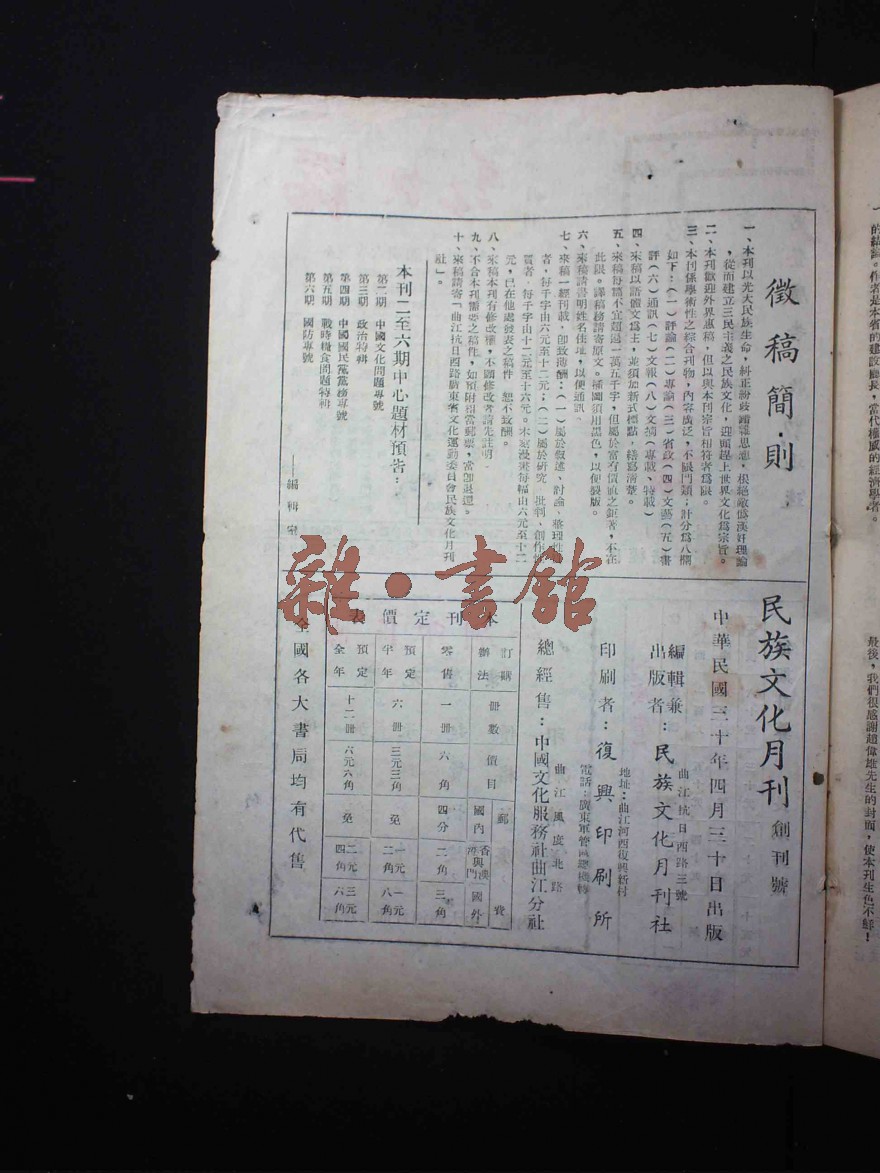 徵稿簡則
一、本刊以光大民族生命，糾正紛歧
思想，根絕敵偽漢奸理論
，從而建立三民主義之民族文化，迎頭趕上世界文化為宗旨。
二、本刊歡迎外界惠稿，但以與本刊宗旨相符者為限。
三、本刊係學術性之綜合刊物，內容廣泛，不限門類；計分為八欄
如下：（一）評論（二）專論（三）省政（四）文藝（五）書
評（六）通訊（七）文報（八）文摘（專載、特載）
四、來稿以語體文為主，並須加新式標點，繕寫清楚。
五、來稿每篇不宜超過一萬五千字，但屬於富有價值之鉅著，不在
此限。譯稿務請寄原文。插圖須用黑色，以便製版。
六、來稿請書明姓名住址，以便通訊。
七、來稿一經刊載，即致薄酬：（一）屬於敘述、討論、整理性
者，每千字由六元至十二元；（二）屬於研究，批判，創作性
質者，每千字由十二元至十六元。木刻漫畫每幅由六元至十二
元，已在他處發表之稿件　恕不致酬。
八、來稿本刊有修改權，不願修改者請先註明
九、不合本刊需要之稿件，如預附相當郵票，當即退還。
十、來稿請寄「曲江抗日西路廣東省文化運動委員會民族文化月刊
社」。
本刊二至六期中心題材預告：
第二期　中國文化問題專號
第三期　政治特輯
第四期　中國國民黨黨務專號
第五期　戰時糧食問題特輯
第六期　國防專號
——編輯室
民族文化月刊　創刊號
中華民國三十年四月三十日出版
編輯兼
出版者：民族文化月刊社
曲江抗日西路三號
印刷者：復興印刷所
地址：曲江河西復興新村
電話：廣東軍管區總機轉
總經售：中國文化服務社曲江分社
曲江風度北路
本刊定價表
訂購辦法　冊數　價目　郵費　國內　香港與澳門　國外
零售　一冊　六角　四分　二角　三角
預定半年　六冊　三元三角　免　一元二角　一元八角
預定全年　十二冊　六元六角　免　二元四角　三元六角
全國各大書局均有代售
雜·書館
的結論。作者是本省的建設廳長，當代權威的經濟學者。
最後，我們很感謝趙偉雄先生的封面，使本刊生色不鮮！